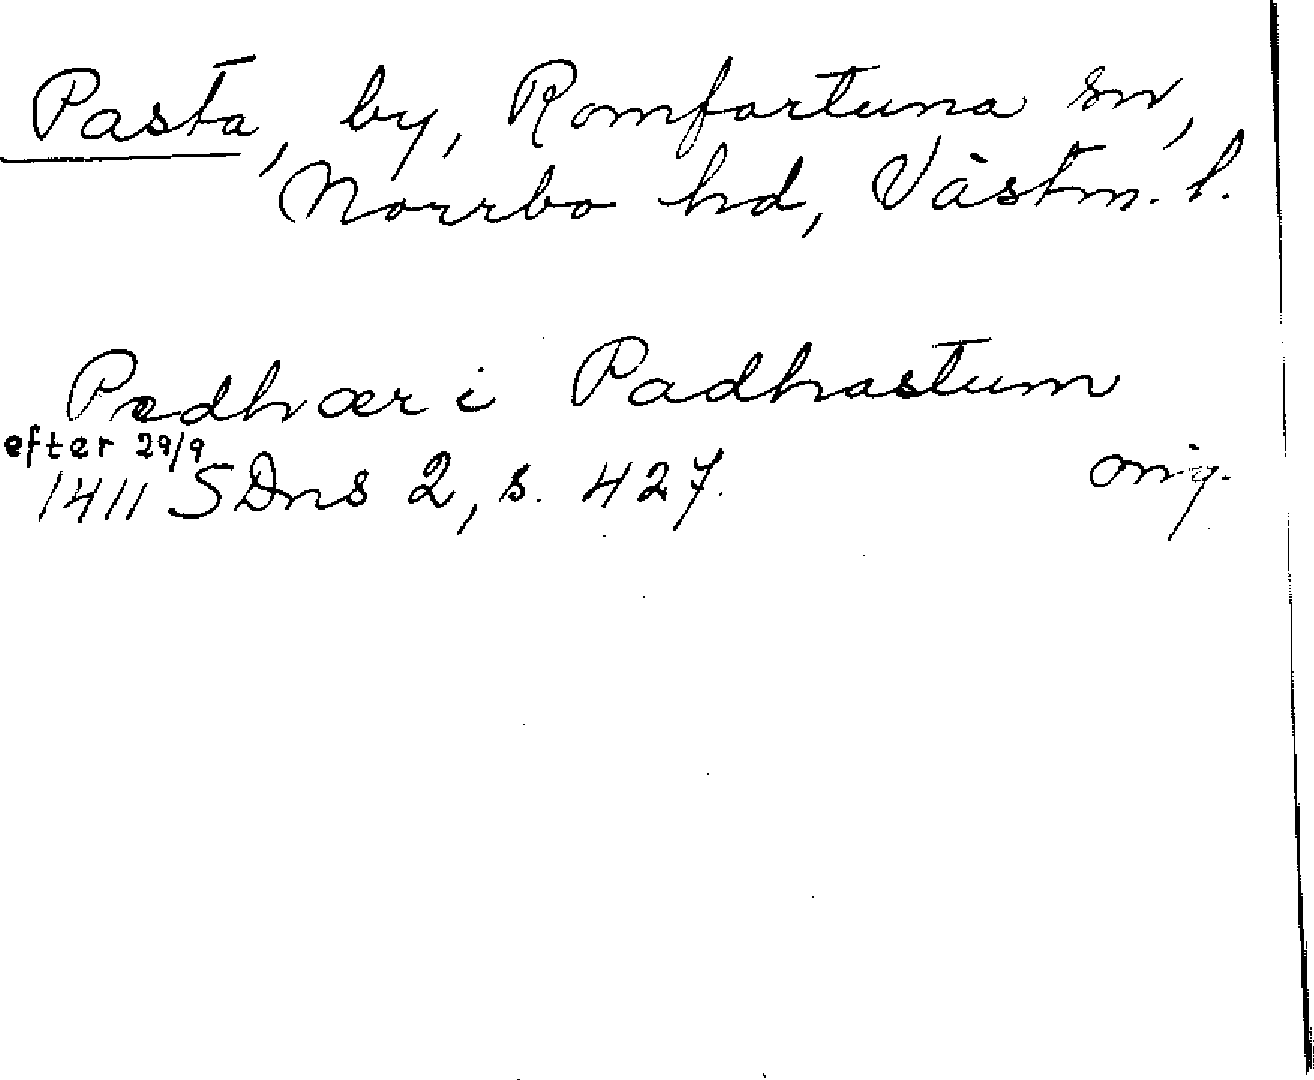 Pasta, by, Romfartuna sn,
Norrbo hd, Västm. l.
Pædhær i Padhastum
efter 29/9
1411 SDns 2, s. 427. orig.